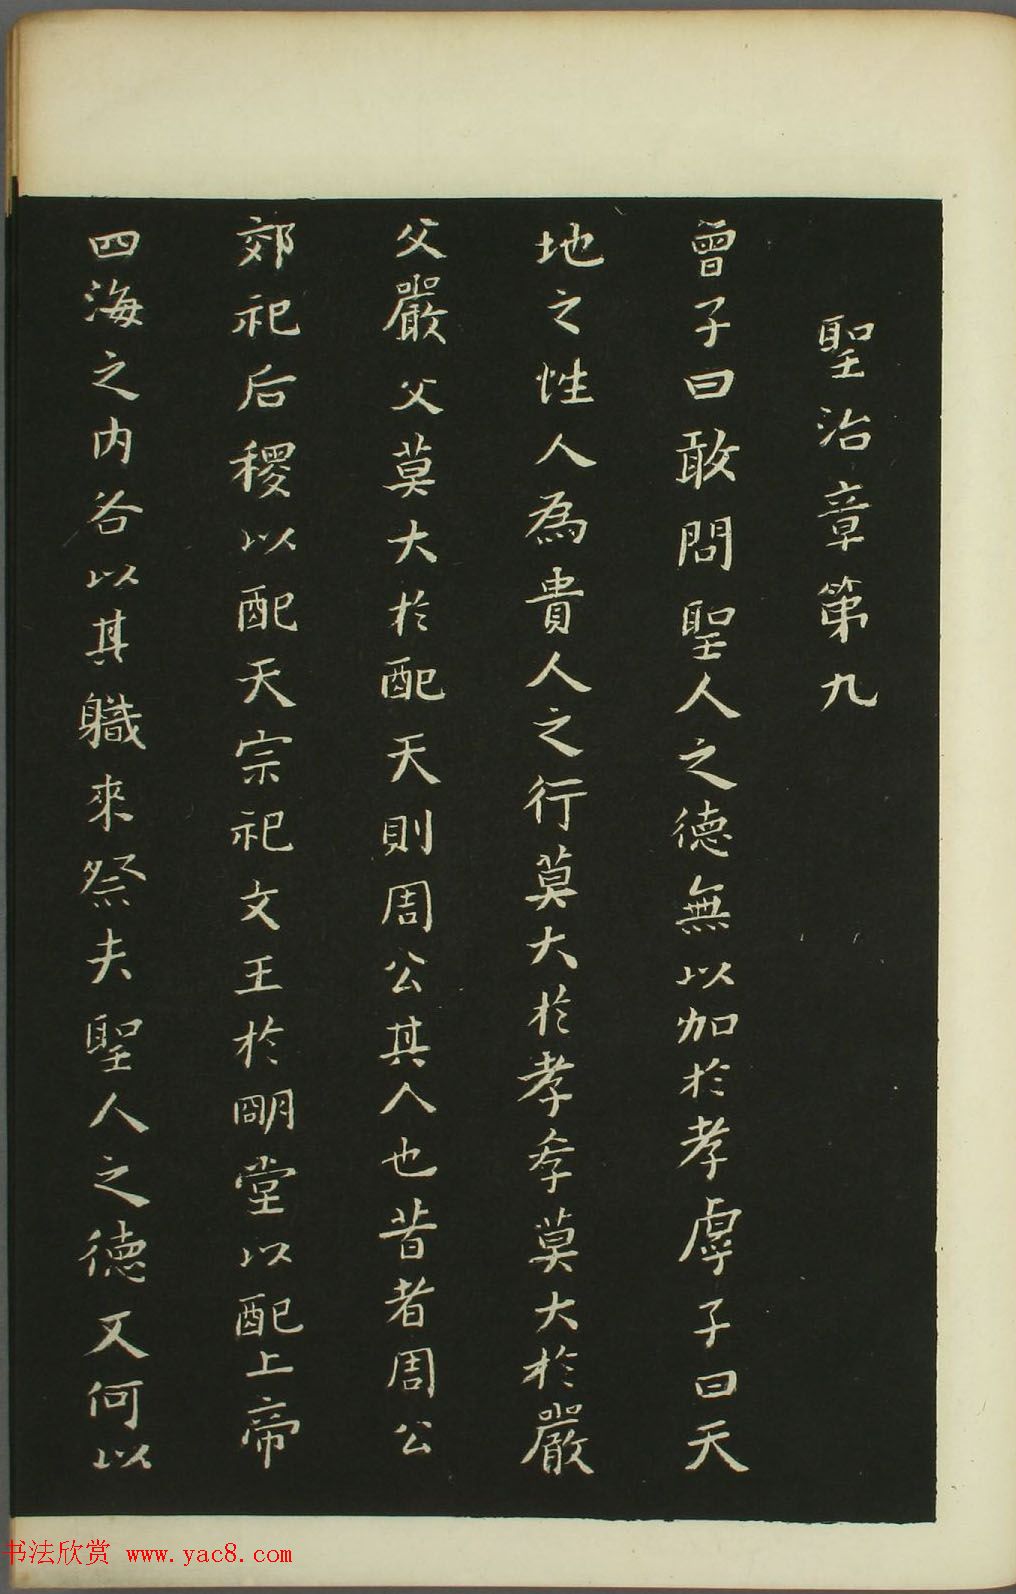 聖治章第九
曾子曰敢問聖人之德無以加於孝虖子曰天
地之性人為貴人之行莫大於孝孝莫大於嚴
父嚴父莫大於配天則周公其人也昔者周公
郊祀后稷以配天宗祀文王於明堂以配上帝
四海之內各以其職來祭夫聖人之德又何以
书法欣赏 www.yac8.com